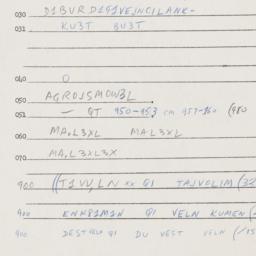 030 D1BURD1G1VEJNCILANK-
031 KU3T BU3T
040 0
050 AGROJSMOW3L
051 — GT 950-953 cm 957-960 (980
060 MA,L3XL MAL3XL
070 MA,L3X L3X
900 ((T1VV,LN xx G1 TAJVOLIM (32
900 KNH81M1N G1 VELN KUMEN (
900 DEST G1 DU VEST VELN (/15